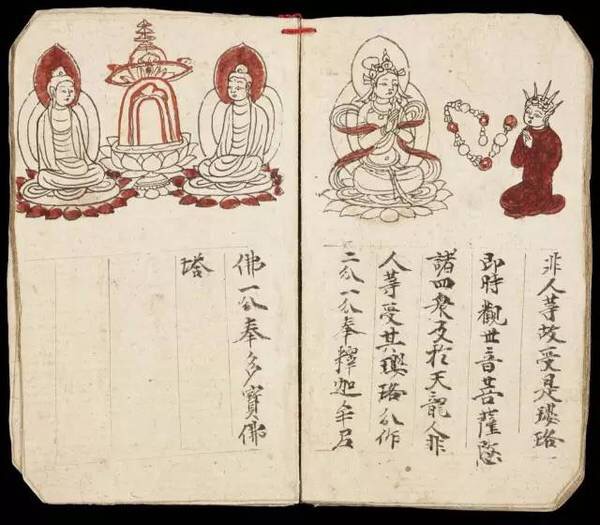 非人等故受是瓔珞
即時觀世音菩薩愍
諸四衆及於天龍人非
人等受其瓔珞分作
二分一分奉釋迦牟尼
佛一分奉多寶佛
塔